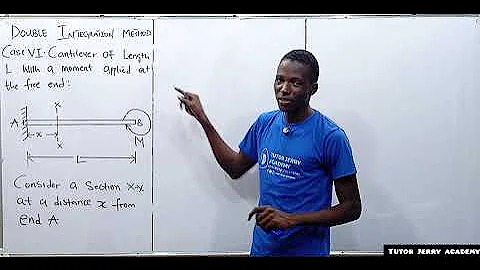 DOUBLE INTEGRATION METHOD
Case VI: Cantilever of Length
L with a moment applied at
the free end:
x
A
B
x
x
M
L
Consider a Section X-X
at a distance x from
end A
TUTOR JERRY
ACADEMY
TUTOR JERRY ACADEMY